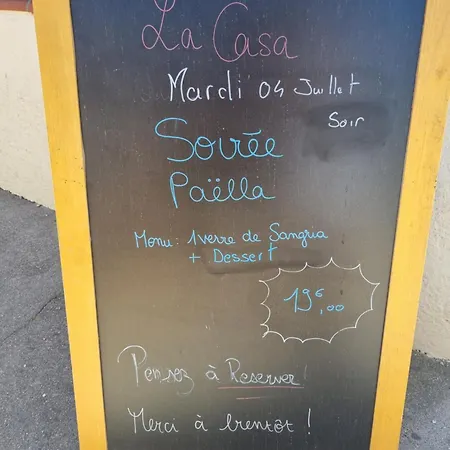 La Casa
Mardi 04 Juillet
Soir
Soirée
Paëlla
Menu: 1 verre de Sangria
+ Dessert
19€,00
Pensez à Reserver!
Merci à bientôt!